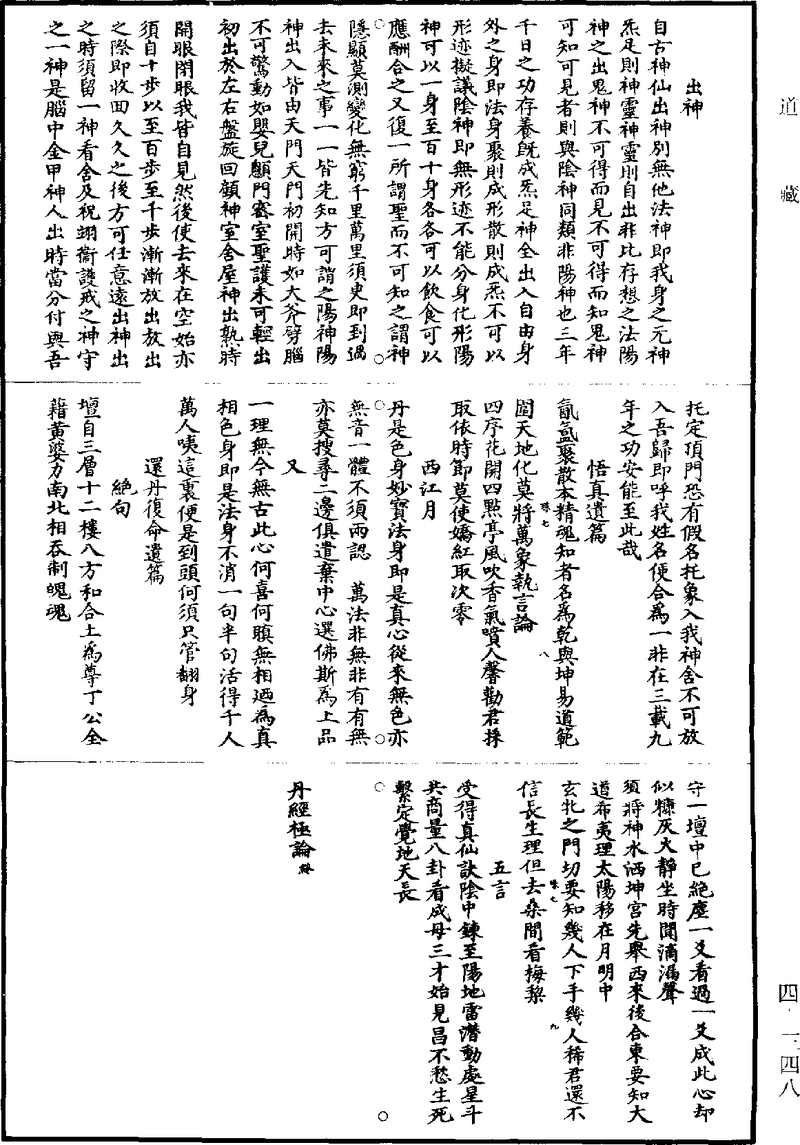 道藏
四‧一四八
出神
自古神仙出神別無他法神即我身之元神
炁足則神靈神靈則自出非比存想之法陽
神之出鬼神不可得而見不可得而知鬼神
可知可見者則與陰神同類非陽神也三年
千日之功存養旣成炁足神全出入自由身
外之身即法身聚則成形散則成炁不可以
形迹擬議陰神即無形迹不能分身化形陽
神可以一身至百十身各各可以飲食可以
應酬合之又復一所謂聖而不可知之謂神
隱顯莫測變化無窮千里萬里須臾即到過
去未來之事一一皆先知方可謂之陽神陽
神出入皆由天門天門初開時如大斧劈腦
不可驚動如嬰兒顖門密室聖護未可輕出
初出於左右盤旋回顧神室舍屋神出熟時
開眼閉眼我皆自見然後使去來在空始亦
須自十步以至百步至千步漸漸放出放出
之際即收回久久之後方可任意遠出神出
之時須留一神看舍及祝翊衞護戒之神守
之一神是腦中金甲神人出時當分付與吾
托定頂門恐有假名托象入我神舍不可放
入吾歸即呼我姓名便合為一非在三載九
年之功安能至此哉
悟真遺篇
氤氳聚散本精魂知者名為乾與坤易道範
圍天地化莫將萬象執言論
四序花開四點亭風吹香氣噴人馨勸君採
取依時節莫使嬌紅取次零
西江月
丹是色身妙寶法身即是真心從來無色亦
無音一體不須兩認 萬法非無非有有無
亦莫搜尋二邊俱遣棄中心選佛斯為上品
又
一理無今無古此心何喜何瞋無相迺為真
相色身即是法身不消一句半句活得千人
萬人咦這裏便是到頭何須只管翻身
還丹復命遺篇
絕句
壇自三層十二樓八方和合土為尊丁公全
藉黃婆力南北相吞制魄魂
守一壇中已絕塵一爻看過一爻成此心却
似糠灰火靜坐時聞滴漏聲
須將神水洒坤宮先舉西來後合東要知大
道希夷理太陽移在月明中
玄牝之門切要知幾人下手幾人稀君還不
信長生理但去桑間看梅梨
五言
受得真仙訣陰中鍊至陽地雷潛動處星斗
共商量八卦看成母三才始見昌不愁生死
繫定覺地天長
丹經極論